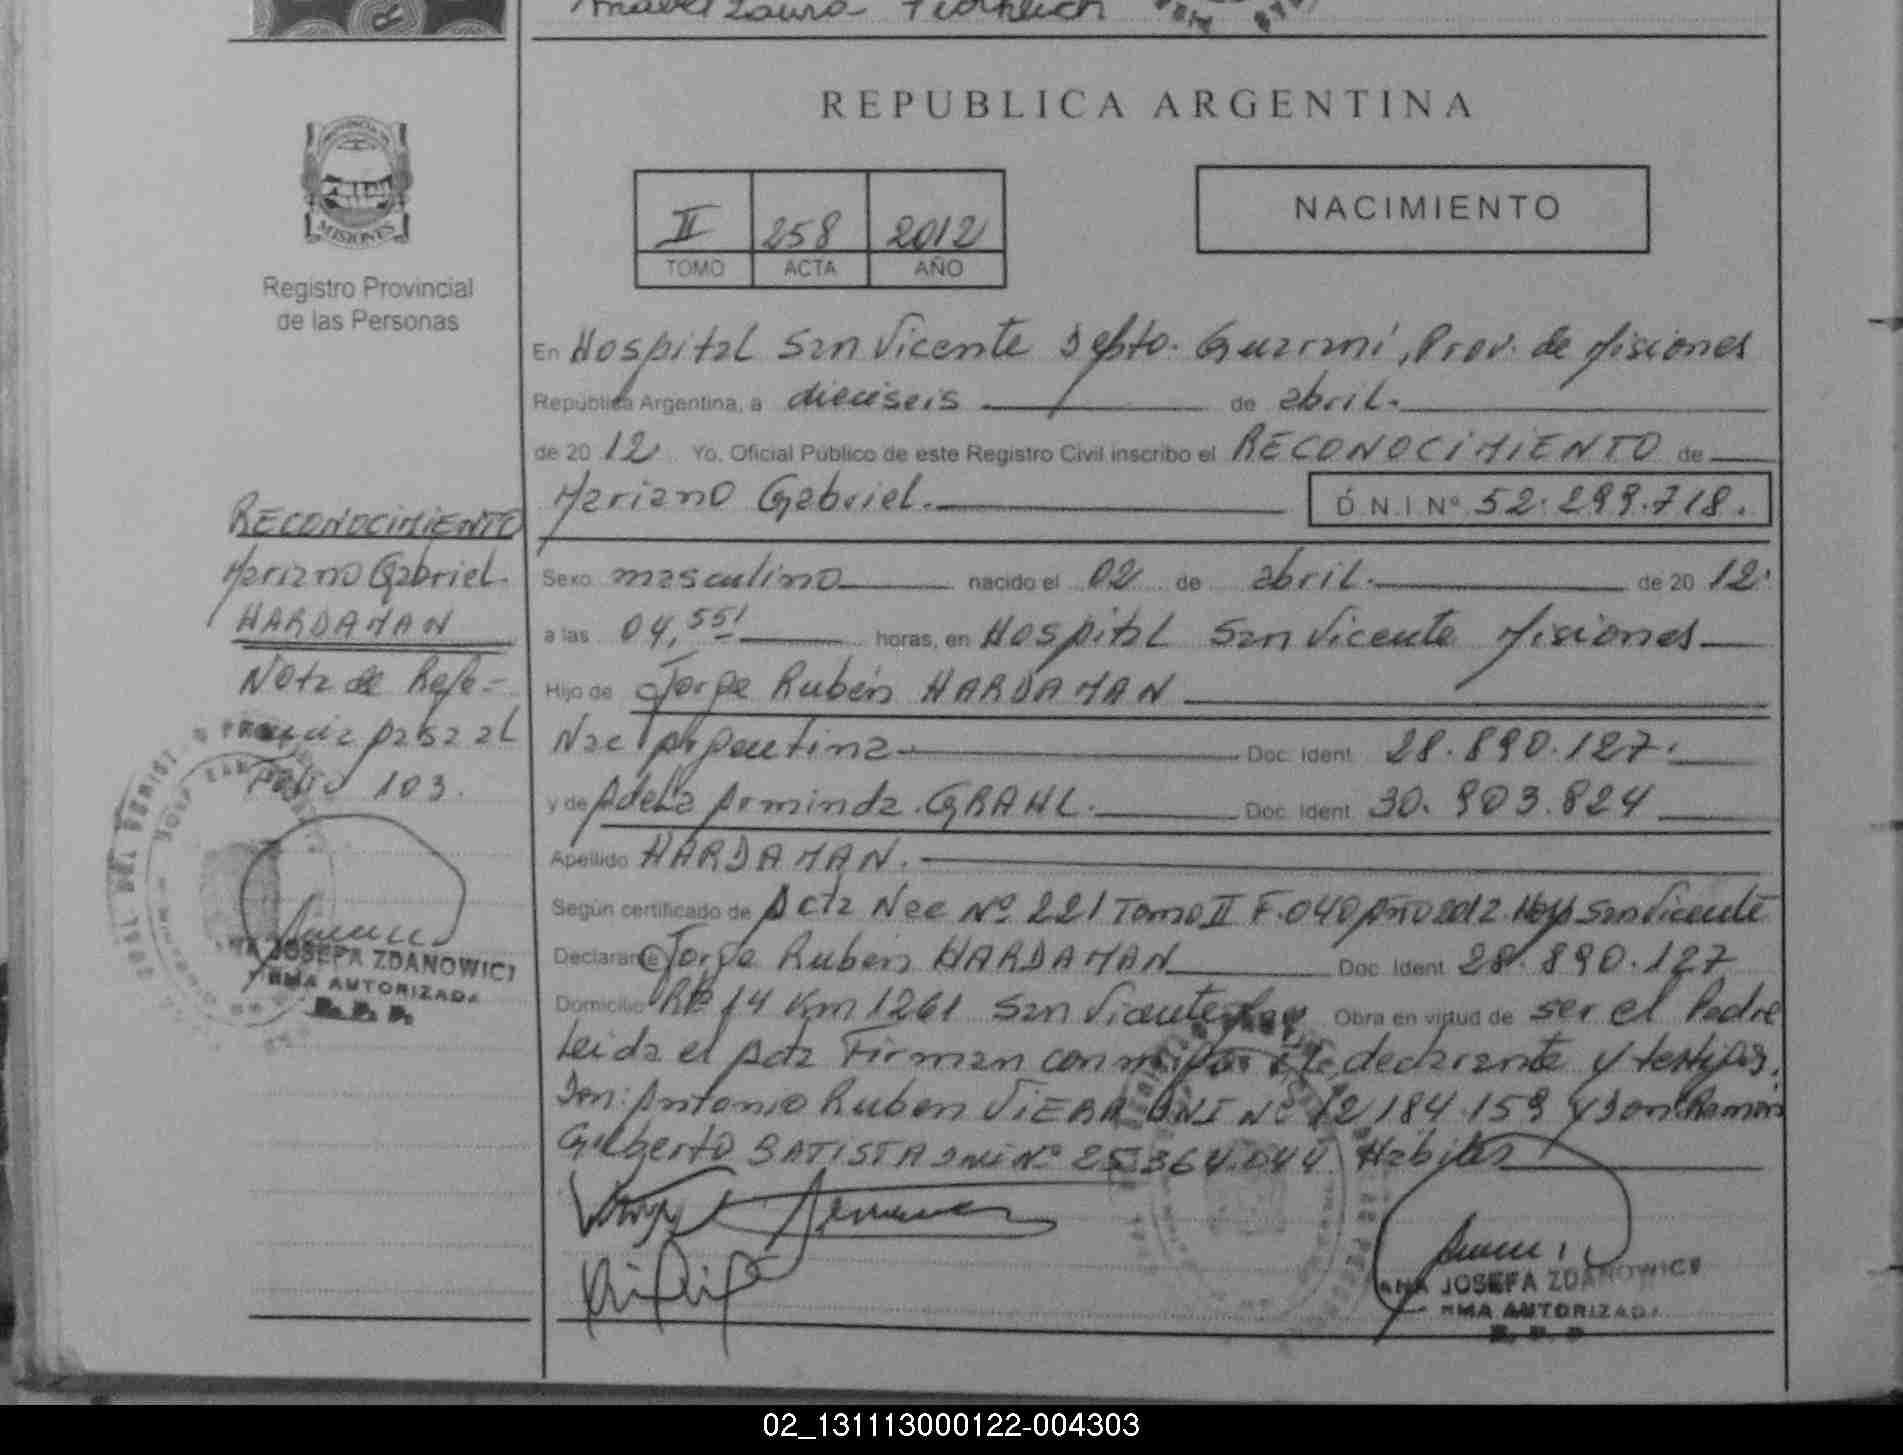 Anabel Laura
REPUBLICA ARGENTINA
PROVINCIA DE
MISIONES
Registro Provincial
de las Personas
II 258 2012
TOMO ACTA AÑO
NACIMIENTO
En Hospital San Vicente Depto. Guaraní, Prov. de Misiones
República Argentina, a dieciseis de abril.
de 2012 Yo, Oficial Público de este Registro Civil inscribo el RECONOCIMIENTO de
Mariano Gabriel. D.N.I Nº 52.299.718.
RECONOCIMIENTO
Mariano Gabriel
HARDAMAN
Nota de Refe-
rencia pasa al
Folio 103.
Sexo masculino nacido el 02 de abril. de 2012.
a las 04,55' horas, en Hospital San Vicente Misiones
Hijo de Jorge Rubén HARDAMAN
Nac Argentina Doc. Ident. 28.890.127.
y de Adela Arminda GRAHL. Doc. Ident. 30.903.824
Apellido HARDAMAN.
Según certificado de Acta Nac Nº 221 Tomo II F.040 Año 2012. Hosp San Vicente
Declarante Jorge Ruben HARDAMAN Doc. Ident. 28.890.127
Domicilio 14 Km 1261 San Vicente Obra en virtud de ser el Padre
Leida el Acta Firman conmigo el declarante y testigos.
Don: Antonio Ruben VIERA DNI Nº 12 184.159 y Don Ramon
Gilberto BATISTA DNI Nº 25.364.044. Habiles
JOSEFA ZDANOWICZ
FIRMA AUTORIZADA
R. P. P.
ANA JOSEFA ZDANOWICZ
FIRMA AUTORIZADA
02_131113000122-004303